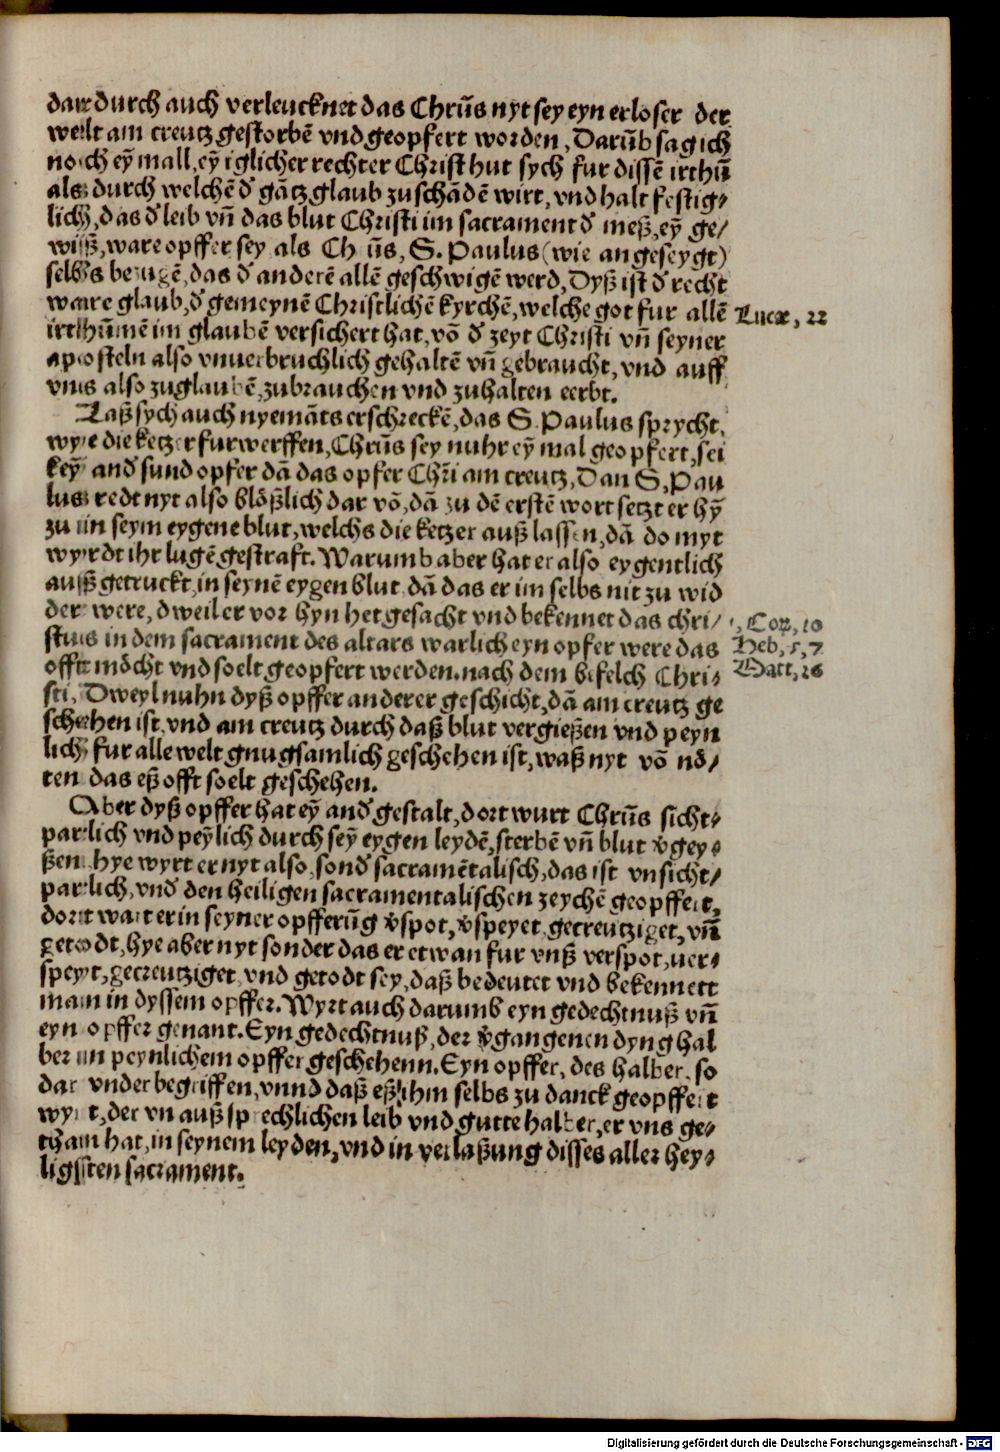 dar durch auch verleucknet das Chrūs nyt sey eyn erloser der
welt am creutz gestorbē vnd geopfert worden, Darūb sag ich
noch eȳ mall, eȳ iglicher rechter Christ hut sych fur dissē irthū
als durch welchē đ gātz glaub zu schādē wirt, vnd halt festig⸗
lich, das đ leib vn̄ das blut Christi im sacrament đ meß, eȳ ge⸗
wiß, ware opffer sey als Chrūs, S. Paulus (wie angeseygt)
selbs bezugē, das đ anderē allē geschwigē werd, Dyß ist đ recht
ware glaub, đ gemeynē Christlichē kyrchē, welche got fur allē
irthūmē im glaubē versichert hat, vō đ zeyt Christi vn̄ seyner
aposteln also vnuerbruchlich gehaltē vn̄ gebraucht, vnd auff
vns also zuglaubē, zubrauchen vnd zuhalten eerbt.
Luce, 22
Laß sych auch nyemāts erschreckē, das S. Paulus sprycht,
wye die ketzer furwerffen, Chrūs sey nuhr eȳ mal geopfert, sei
keȳ and̄ sund opfer dā das opfer Chr̄i am creutz, Dan S. Pau
lus redt nyt also blößlich dar vō, dā zu dē erstē wort setzt er hȳ
zu in seym eygene blut, welchs die ketzer auß lassen, dā do myt
wyrdt ihr lugē gestraft. Warumb aber hat er also eygentlich
auß getruckt, in seynē eygen blut dā das er im selbs nit zu wid
der were, dweil er vor hyn het gesacht vnd bekennet das chri⸗
stus in dem sacrament des altars warlich eyn opfer were das
offt möcht vnd soelt geopfert werden. nach dem befelch Chri⸗
sti, Dweyl nuhn dyß opffer anderer geschicht, dā am creutz ge
schehen ist, vnd am creutz durch daß blut vergießen vnd peyn
lich fur alle welt gnugsamlich geschehen ist, waß nyt vō nö⸗
ten das eß offt soelt geschehen.
1, Cor, 10
Heb, 5, 7
Matt, 26
Aber dyß opffer hat eȳ and̄ gestalt, dort wurt Chrūs sicht⸗
parlich vnd peȳlich durch seȳ eygen leydē, sterbē vn̄ blut v̄gey⸗
ßen, hye wyrt er nyt also, sond̄ sacramētalisch, das ist vnsicht⸗
parlich, vnd̄ den heiligen sacramentalischen zeychē geopffert,
dort wart er in seyner opfferūg v̄spot, v̄speyet, gecreutziget, vn̄
getodt, hye aber nyt sonder das er etwan fur vnß verspot, ver⸗
speyt, gecreutziget vnd getodt sey, daß bedeutet vnd bekennett
man in dyssem opffer. Wyrt auch darumb eyn gedechtnuß vn̄
eyn opffer genant. Eyn gedechtnuß, der v̄gangenen dyng hal
ber im peynlichem opffer geschehenn. Eyn opffer, des halber, so
dar vnder begriffen, vnnd daß eß ihm selbs zu danck geopffert
wyrt, der vn auß sprechlichen leib vnd gutte halber, er vns ge⸗
tham hat, in seynem leyden, vnd in verlaßung disses aller hey⸗
ligsten sacrament.
Digitalisierung gefördert durch die Deutsche Forschungsgemeinschaft - DFG